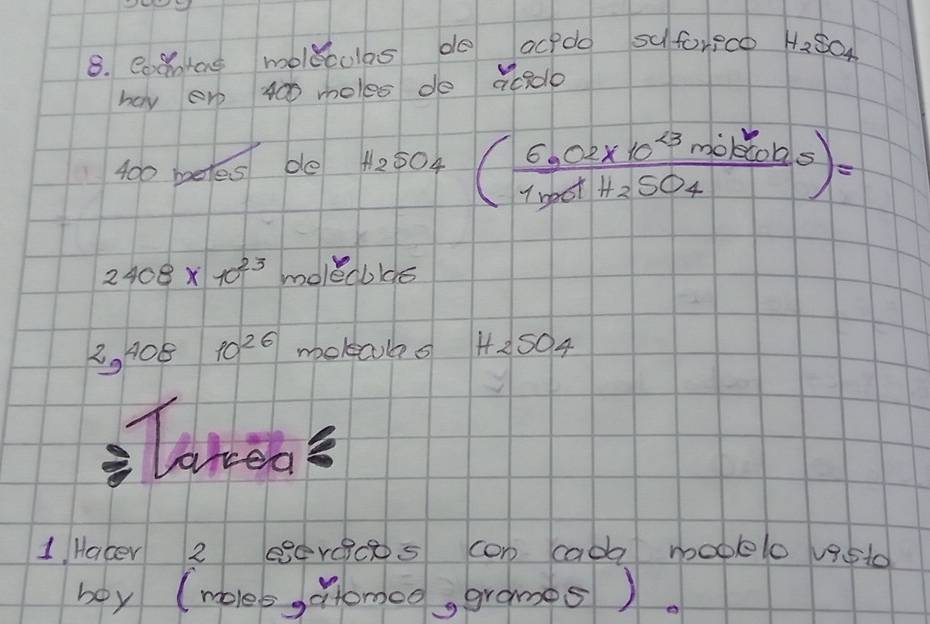 8. cuántas moléculas de acido sulfúrico H₂SO₄
hay en 400 moles de ácido
400 moles de H₂SO₄ (6,02 x 10²³ moléculas / 1 mol H₂SO₄) =
2408 x 10²³ moléculas
2,408 10²⁶ moleculas H₂SO₄
Tarea
1. Hacer 2 ejercicios con cada modelo visto
hoy (moles, átomos, gramos).